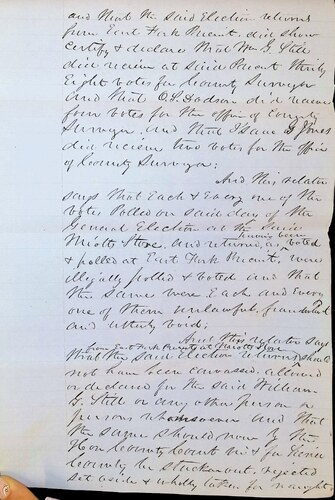 and that the said Election returns
from East Fork Precinct, did show
Certify & declare that Wm G. Still
did receive at said Precinct thirty
Eight votes for County Surveyor
and that O.P. Dodson did receive
four votes for the office of County
Surveyor, and that Isaac J. Jones
did receive two votes for the office
of County Surveyor;
And this relator
says that Each & Every one of the
votes Polled on said day of the
General Election at the said
Miotts Store, and returned, as having been voted
& polled at East Fork Precinct, were
illegally polled & voted and that
the same were Each and every
one of them unlawful, fraudulent
and utterly void;
And this relator says
that the said Election returns from East Fork Precinct at Miotts Store should
not have been canvassed, allowed
or declared for the said William
G. Still or any other person or
persons whomsoever and that
the same should now by the
Hon County Court in & for
County be stricken out, rejected
set aside & wholly taken for naught